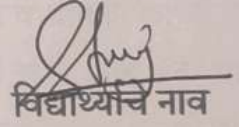 विद्यार्थ्याचे नाव